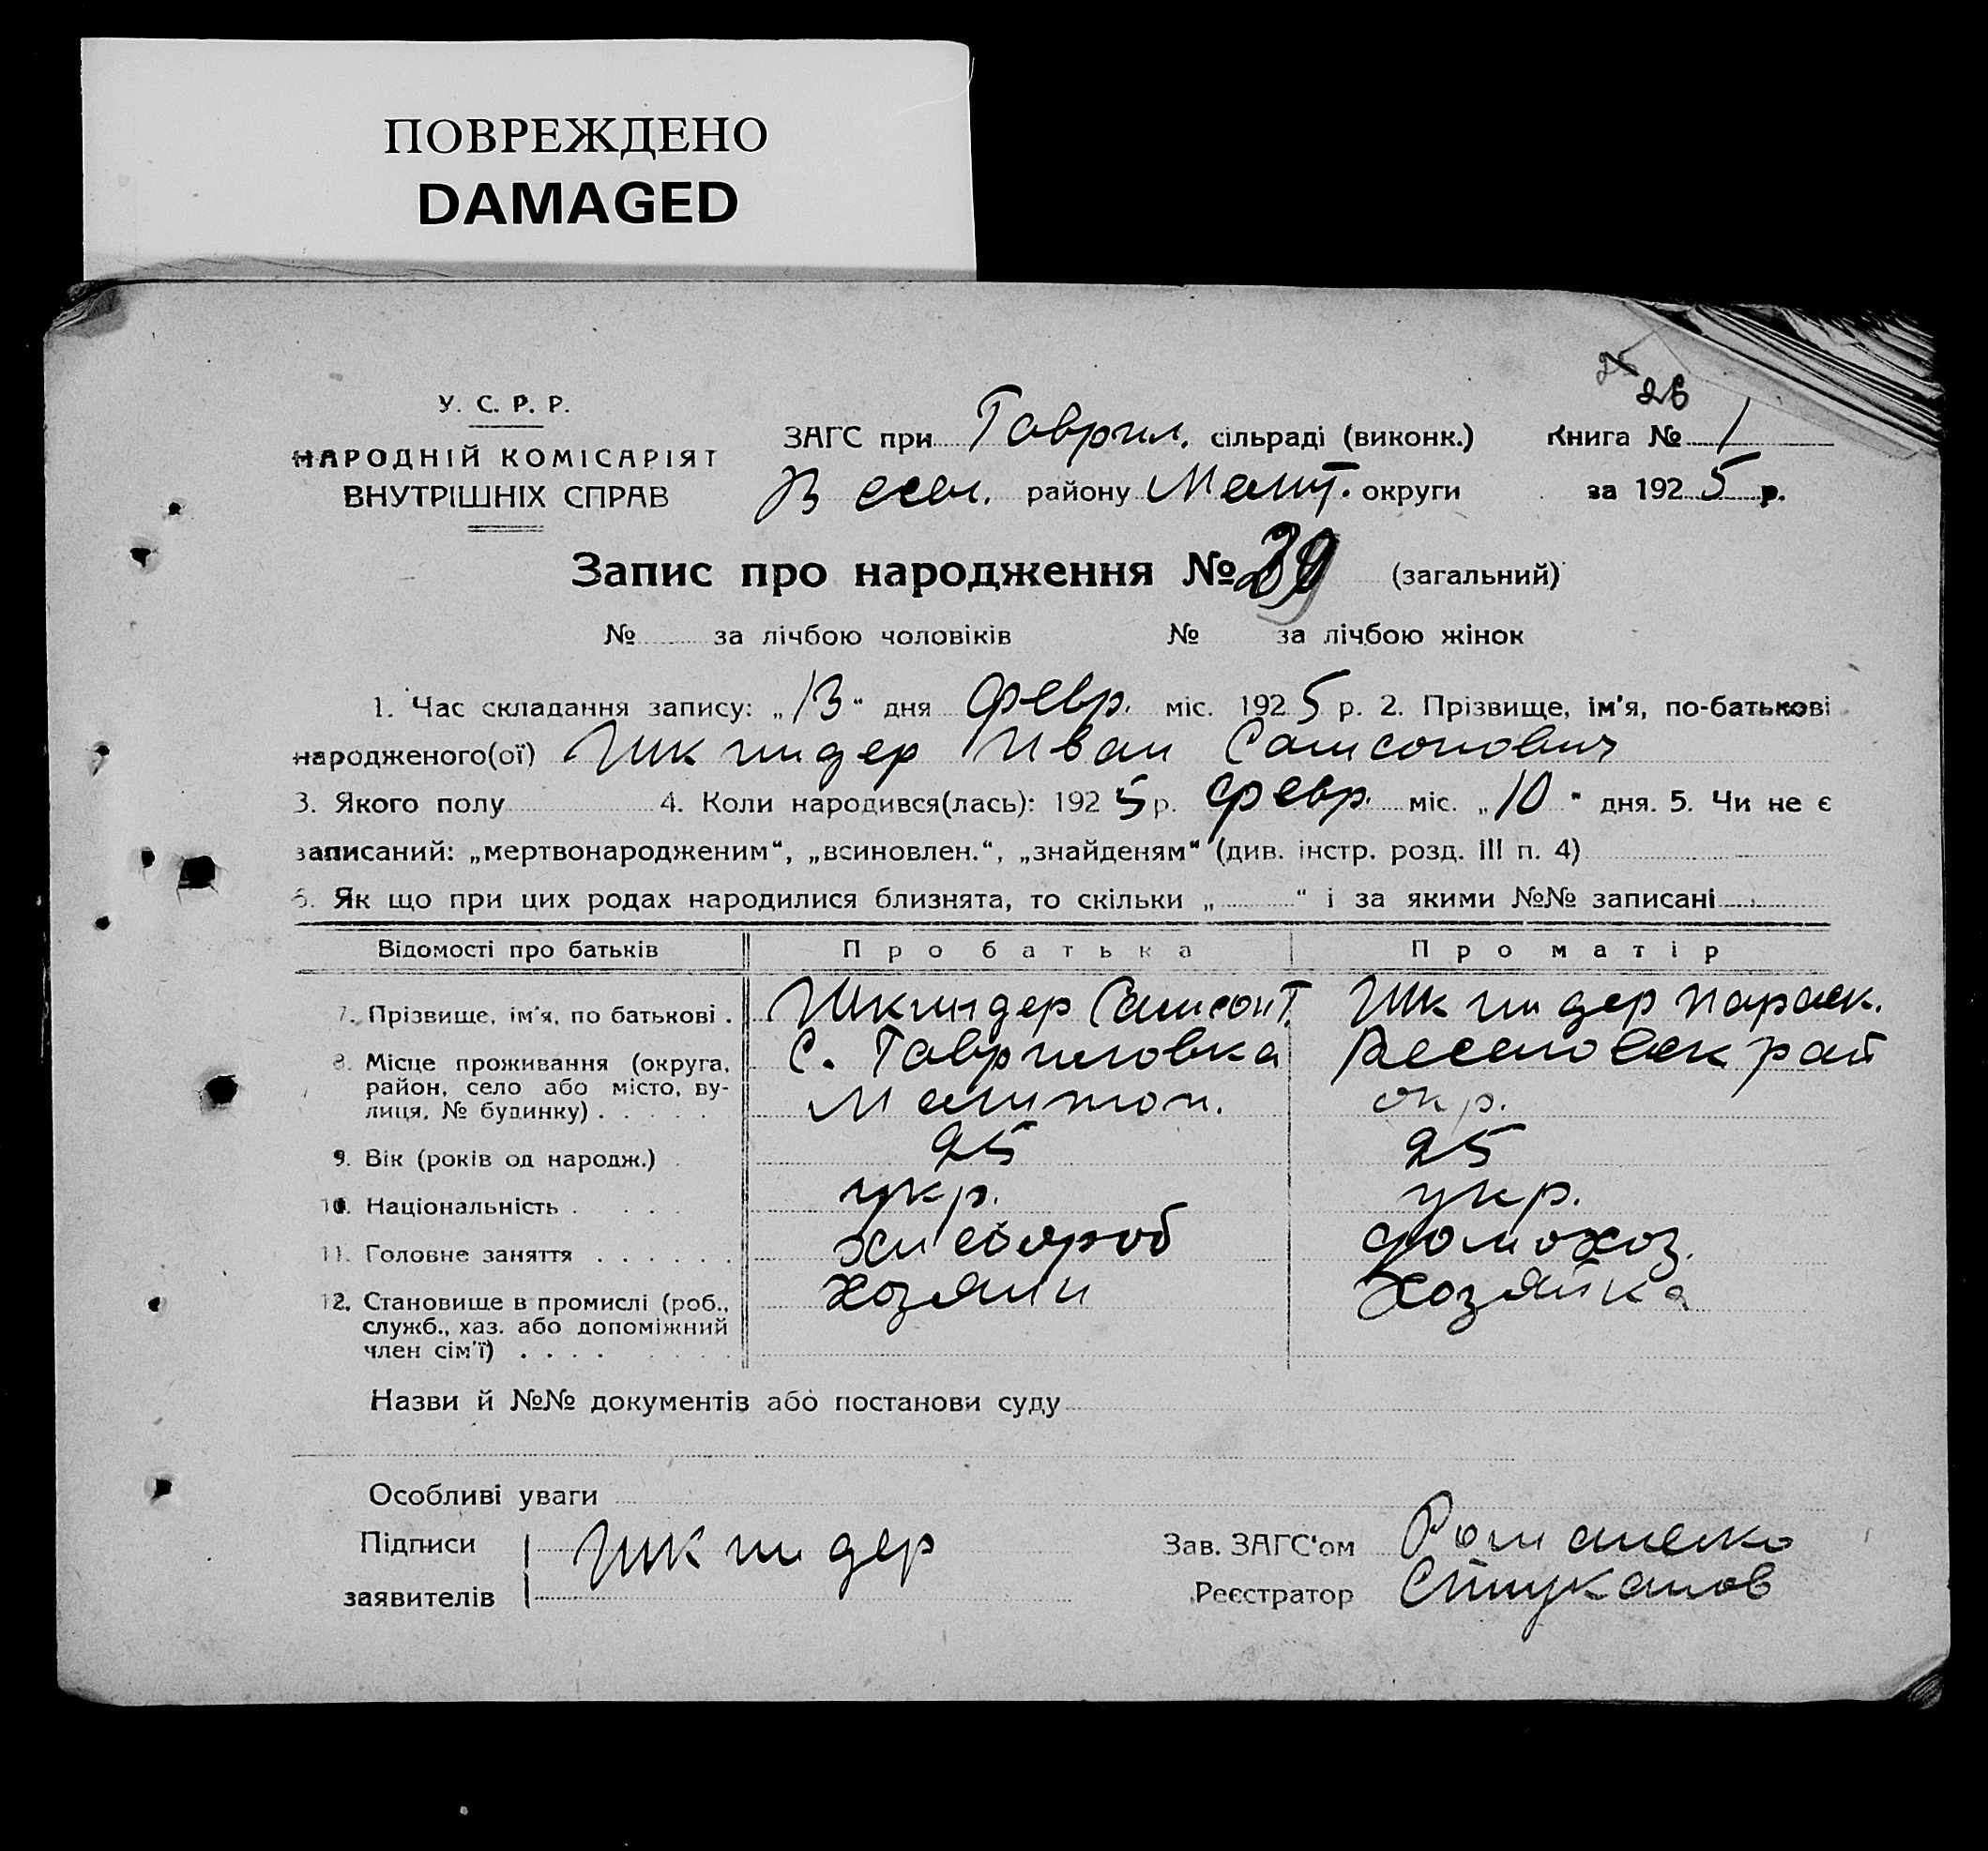 ПОВРЕЖДЕНО
DAMAGED
25
26
У. С. Р. Р.
НАРОДНІЙ КОМІСАРІЯТ
ВНУТРІШНІХ СПРАВ
ЗАГС при Гаврил. сільраді (виконк.) Книга № 1
Весел. району Мелит. округи за 1925 р.
Запис про народження № 39 (загальний)
№ за лічбою чоловіків № за лічбою жінок
1. Час складання запису: „13“ дня февр. міс. 1925 р. 2. Прізвище, ім'я, по-батькові
народженого(ої) Шкиндер Иван Самсонович
3. Якого полу 4. Коли народився(лась): 1925 р. февр. міс. „10“ дня. 5. Чи не є
записаний: „мертвонародженим“, „всиновлен.“, „знайденям“ (див. інстр. розд. III п. 4)
6. Як що при цих родах народилися близнята, то скільки „ “ і за якими №№ записані
Відомості про батьків Про батька Про матір
7. Прізвище, ім'я, по батькові . Шкиндер Самсон Т. Шкиндер Параск.
8. Місце проживання (округа, район, село або місто, вулиця, № будинку) . . . . . С. Гавриловка Веселовск рай
Мелитоп. окр.
9. Вік (років од народж.) . 25 25
10. Національність . . . . укр. укр.
11. Головне заняття . . . . . . хлебороб домохоз.
12. Становище в промислі (роб., хозяин хозяйка
служб., хаз. або допоміжний
член сім'ї) . . . .
Назви й №№ документів або постанови суду
Особливі уваги
Підписи Шкиндер Зав. ЗАГС'ом Романенко
заявителів Реєстратор Стуканов